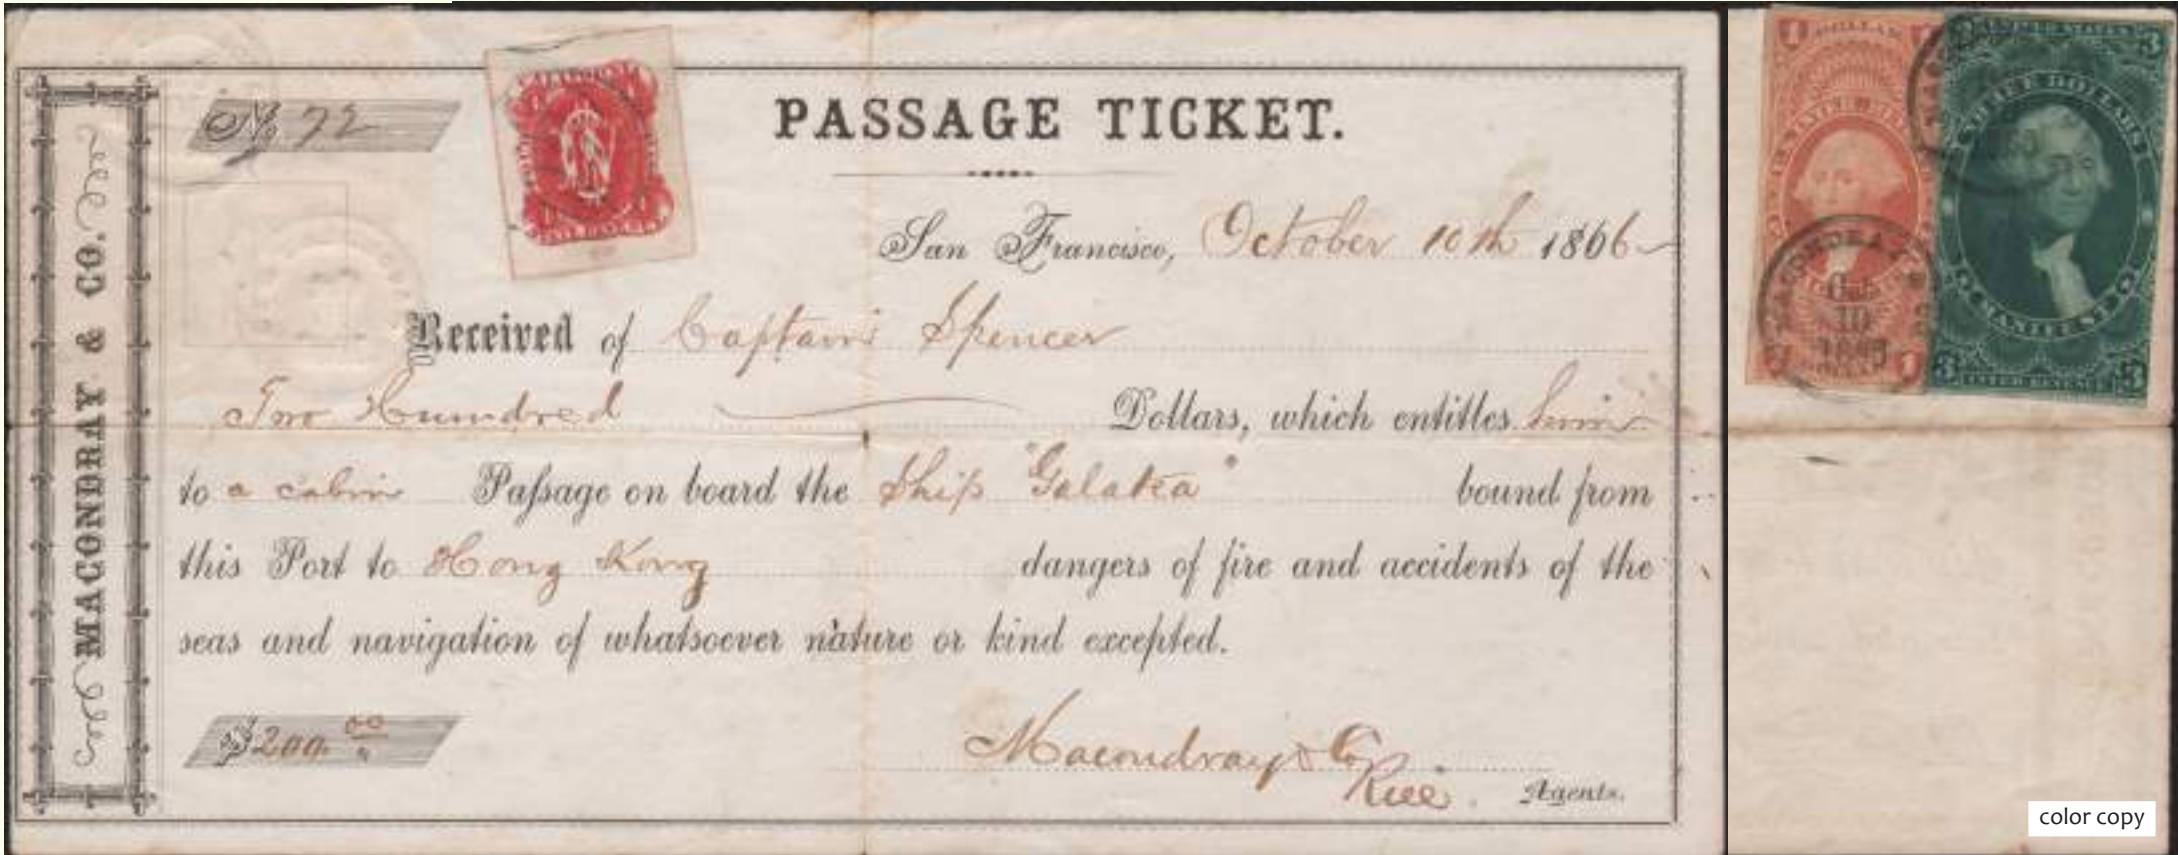 MACONDRAY & CO.
No. 72
PASSAGE TICKET.
San Francisco, October 10th 1866
Received of Captain Spencer
Two Hundred Dollars, which entitles him
to a cabin Passage on board the Ship "Galatea" bound from
this Port to Hong Kong dangers of fire and accidents of the
seas and navigation of whatsoever nature or kind excepted.
$200 00
Macondray & Co
Agents.
1 DOLLAR 1
UNITED STATES
3 3
THREE DOLLARS
MANIFEST
3 INTER. REVENUE 3
MACONDRAY & CO
Oct
10
color copy